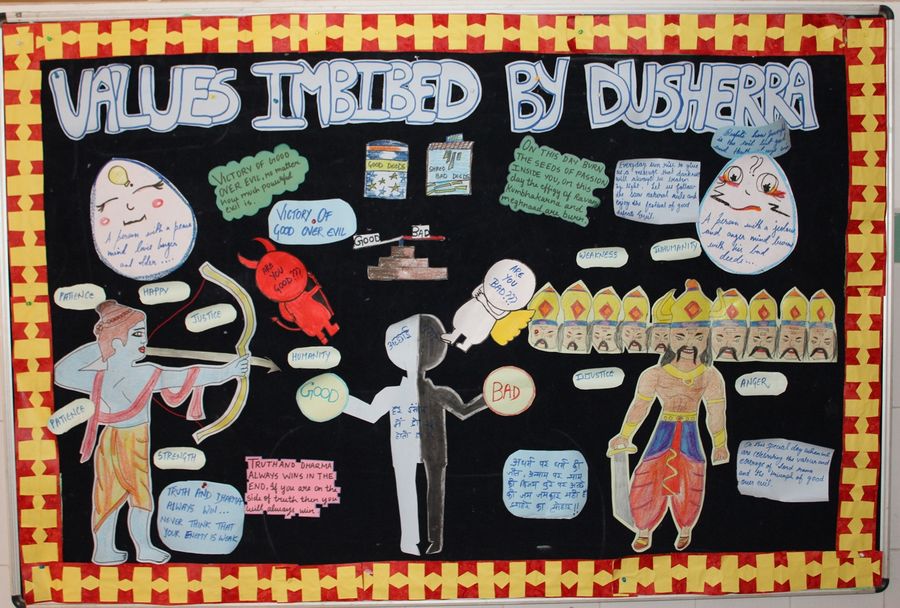 VALUES IMBIBED BY DUSHERRA
VICTORY OF GOOD
OVER EVIL, no matter
how much powerful
evil is.
GOOD DEEDS
SHRED
BAD DEEDS
ON THIS DAY BURN
THE SEEDS OF PASSION
INSIDE YOU, on this
day the effigy of Ravan
Kumbhakarna and
meghnaad are burn
Everyday sun rise to give
us a message that darkness
will always be beaten
by light. Let us follow
the same natural rule and
enjoy the festival of good
defeats evil.
A person with a peace
mind
A person with a jealous
and anger mind
with his bad
deeds...
VICTORY OF
GOOD OVER EVIL
GOOD
BAD
WEAKNESS
INHUMANITY
PATIENCE
HAPPY
JUSTICE
ARE
YOU
GOOD???
ARE
YOU
BAD???
HUMANITY
GOOD
BAD
INJUSTICE
ANGER
PATIENCE
STRENGTH
TRUTH AND DHARMA
ALWAYS WIN...
NEVER THINK THAT
YOUR ENEMY IS WEAK
TRUTH AND DHARMA
ALWAYS WINS IN THE
END. If you are on the
side of truth then you
will always win
अधर्म पर धर्म की
जीत, अन्याय पर न्याय
की विजय, बुरे पर अच्छे
की जय जयकार यही है
दशहरे का त्योहार!!
On this special day when we
are celebrating the valour and
courage of lord rama
and the triumph of good
over evil.